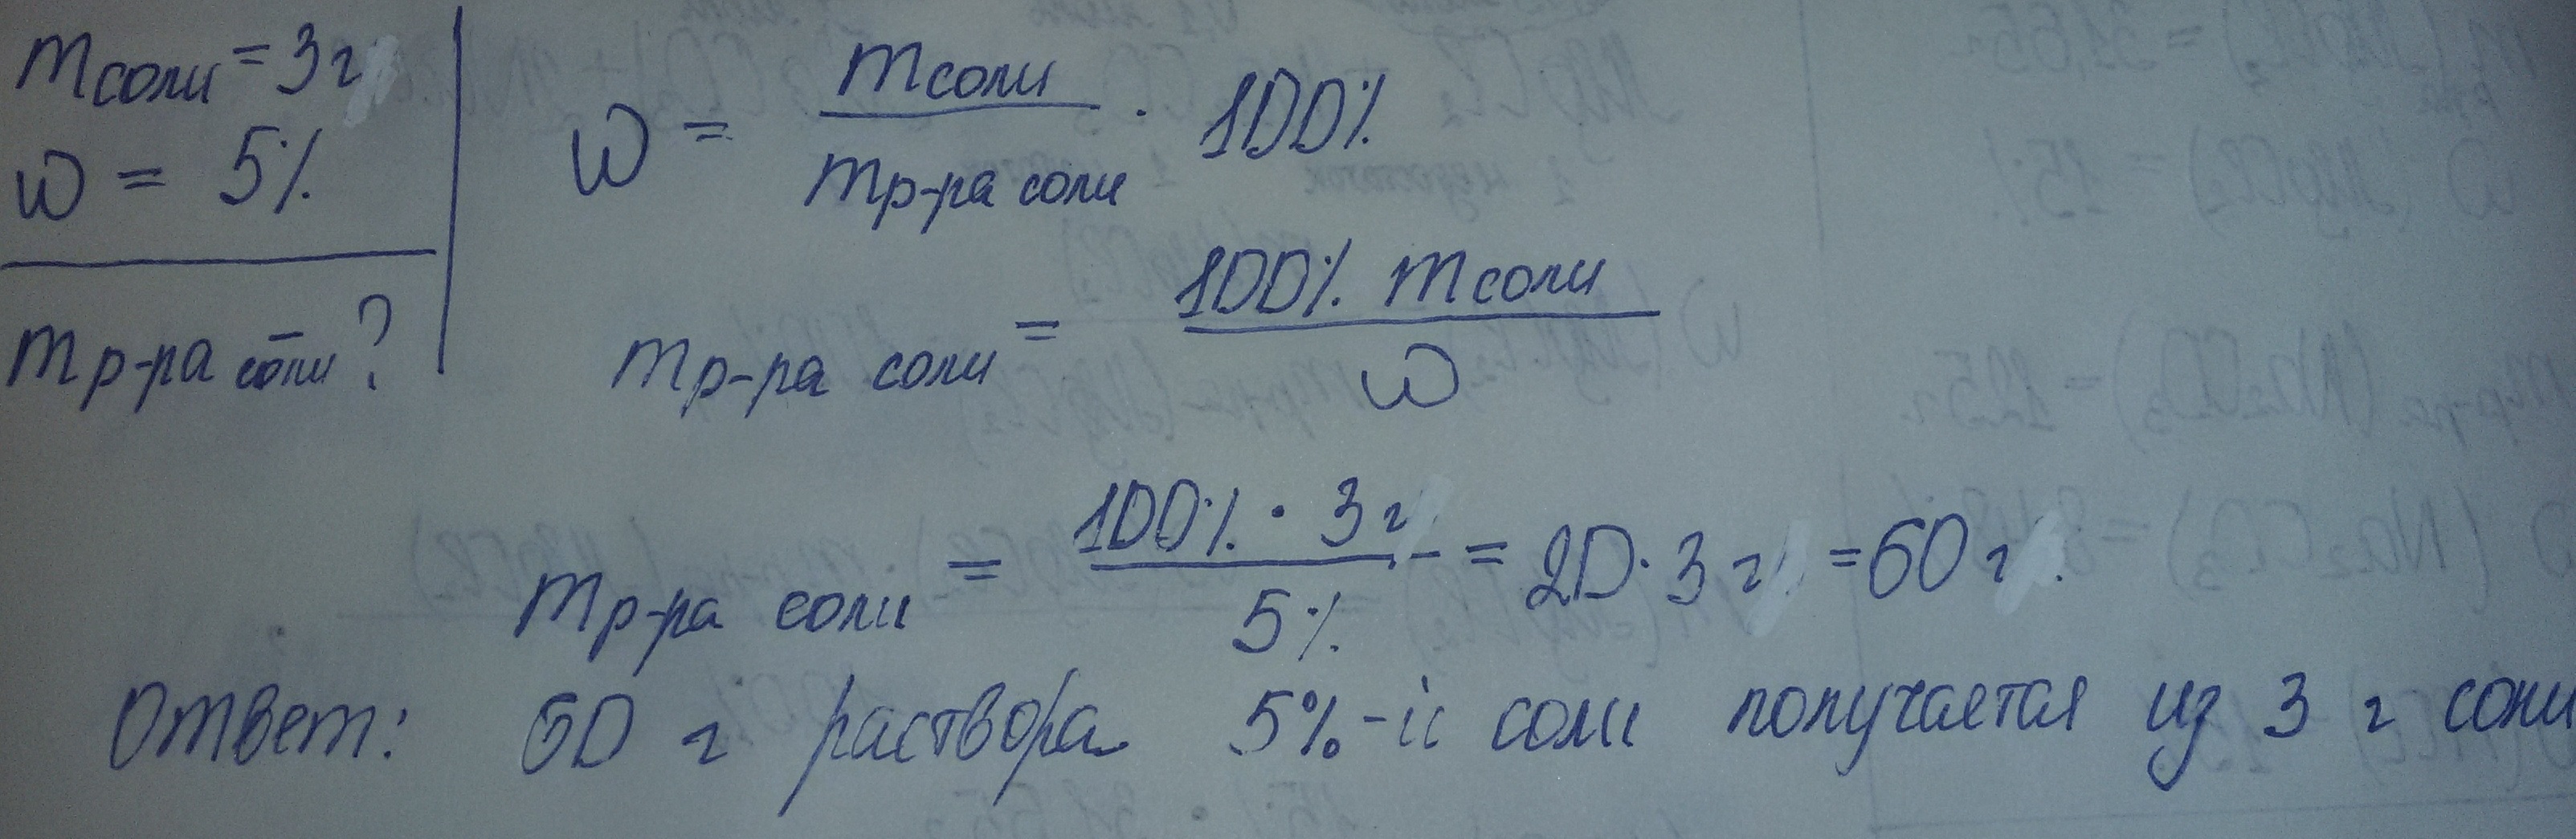 m соли = 3 г
w = 5%
m р-ра соли - ?
w = m соли / m р-ра соли · 100%
m р-ра соли = 100% m соли / w
m р-ра соли = 100% · 3 г / 5% = 20 · 3 г = 60 г
Ответ: 60 г раствора 5%-й соли получается из 3 г соли